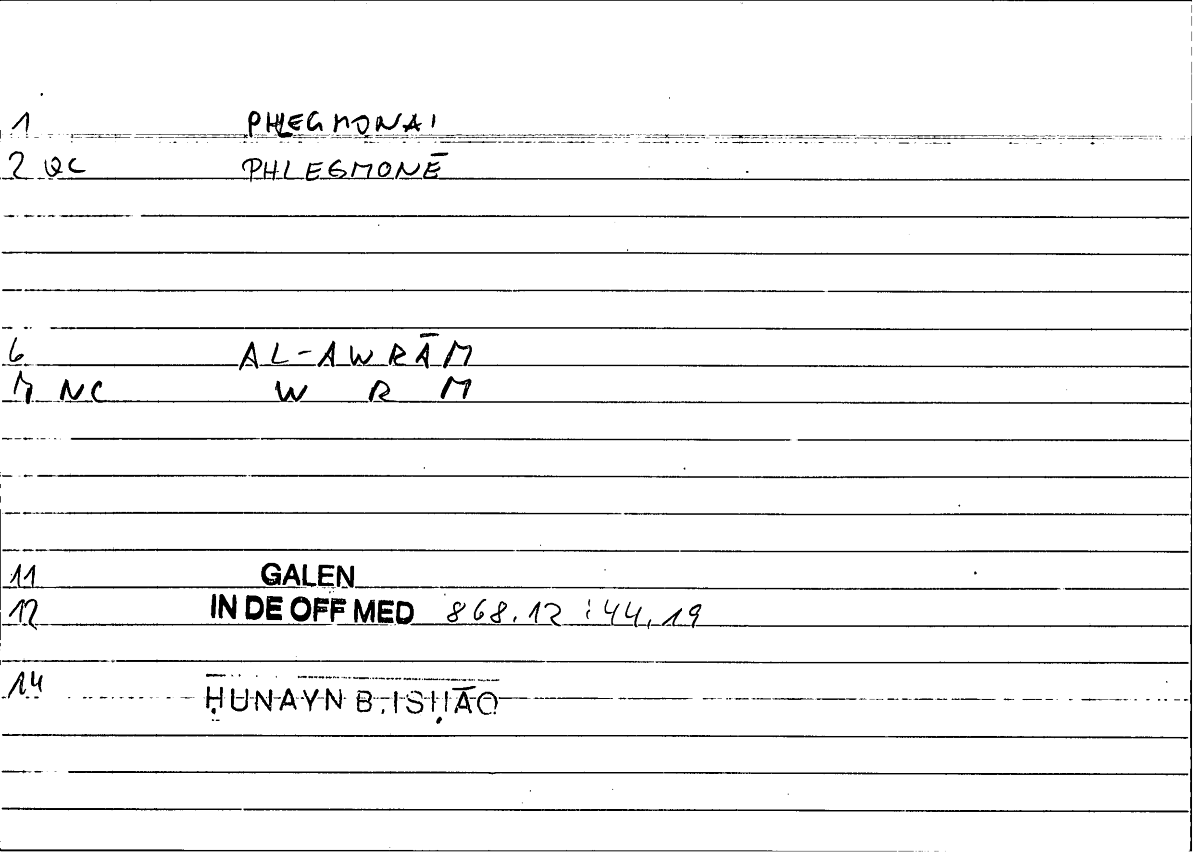 1 PHLEGMONAI
2 QC PHLEGMONĒ
6 AL-AWRĀM
7 NC W R M
11 GALEN
12 IN DE OFF MED 868.12 : 44,19
14 ḤUNAYN B. ISḤĀQ